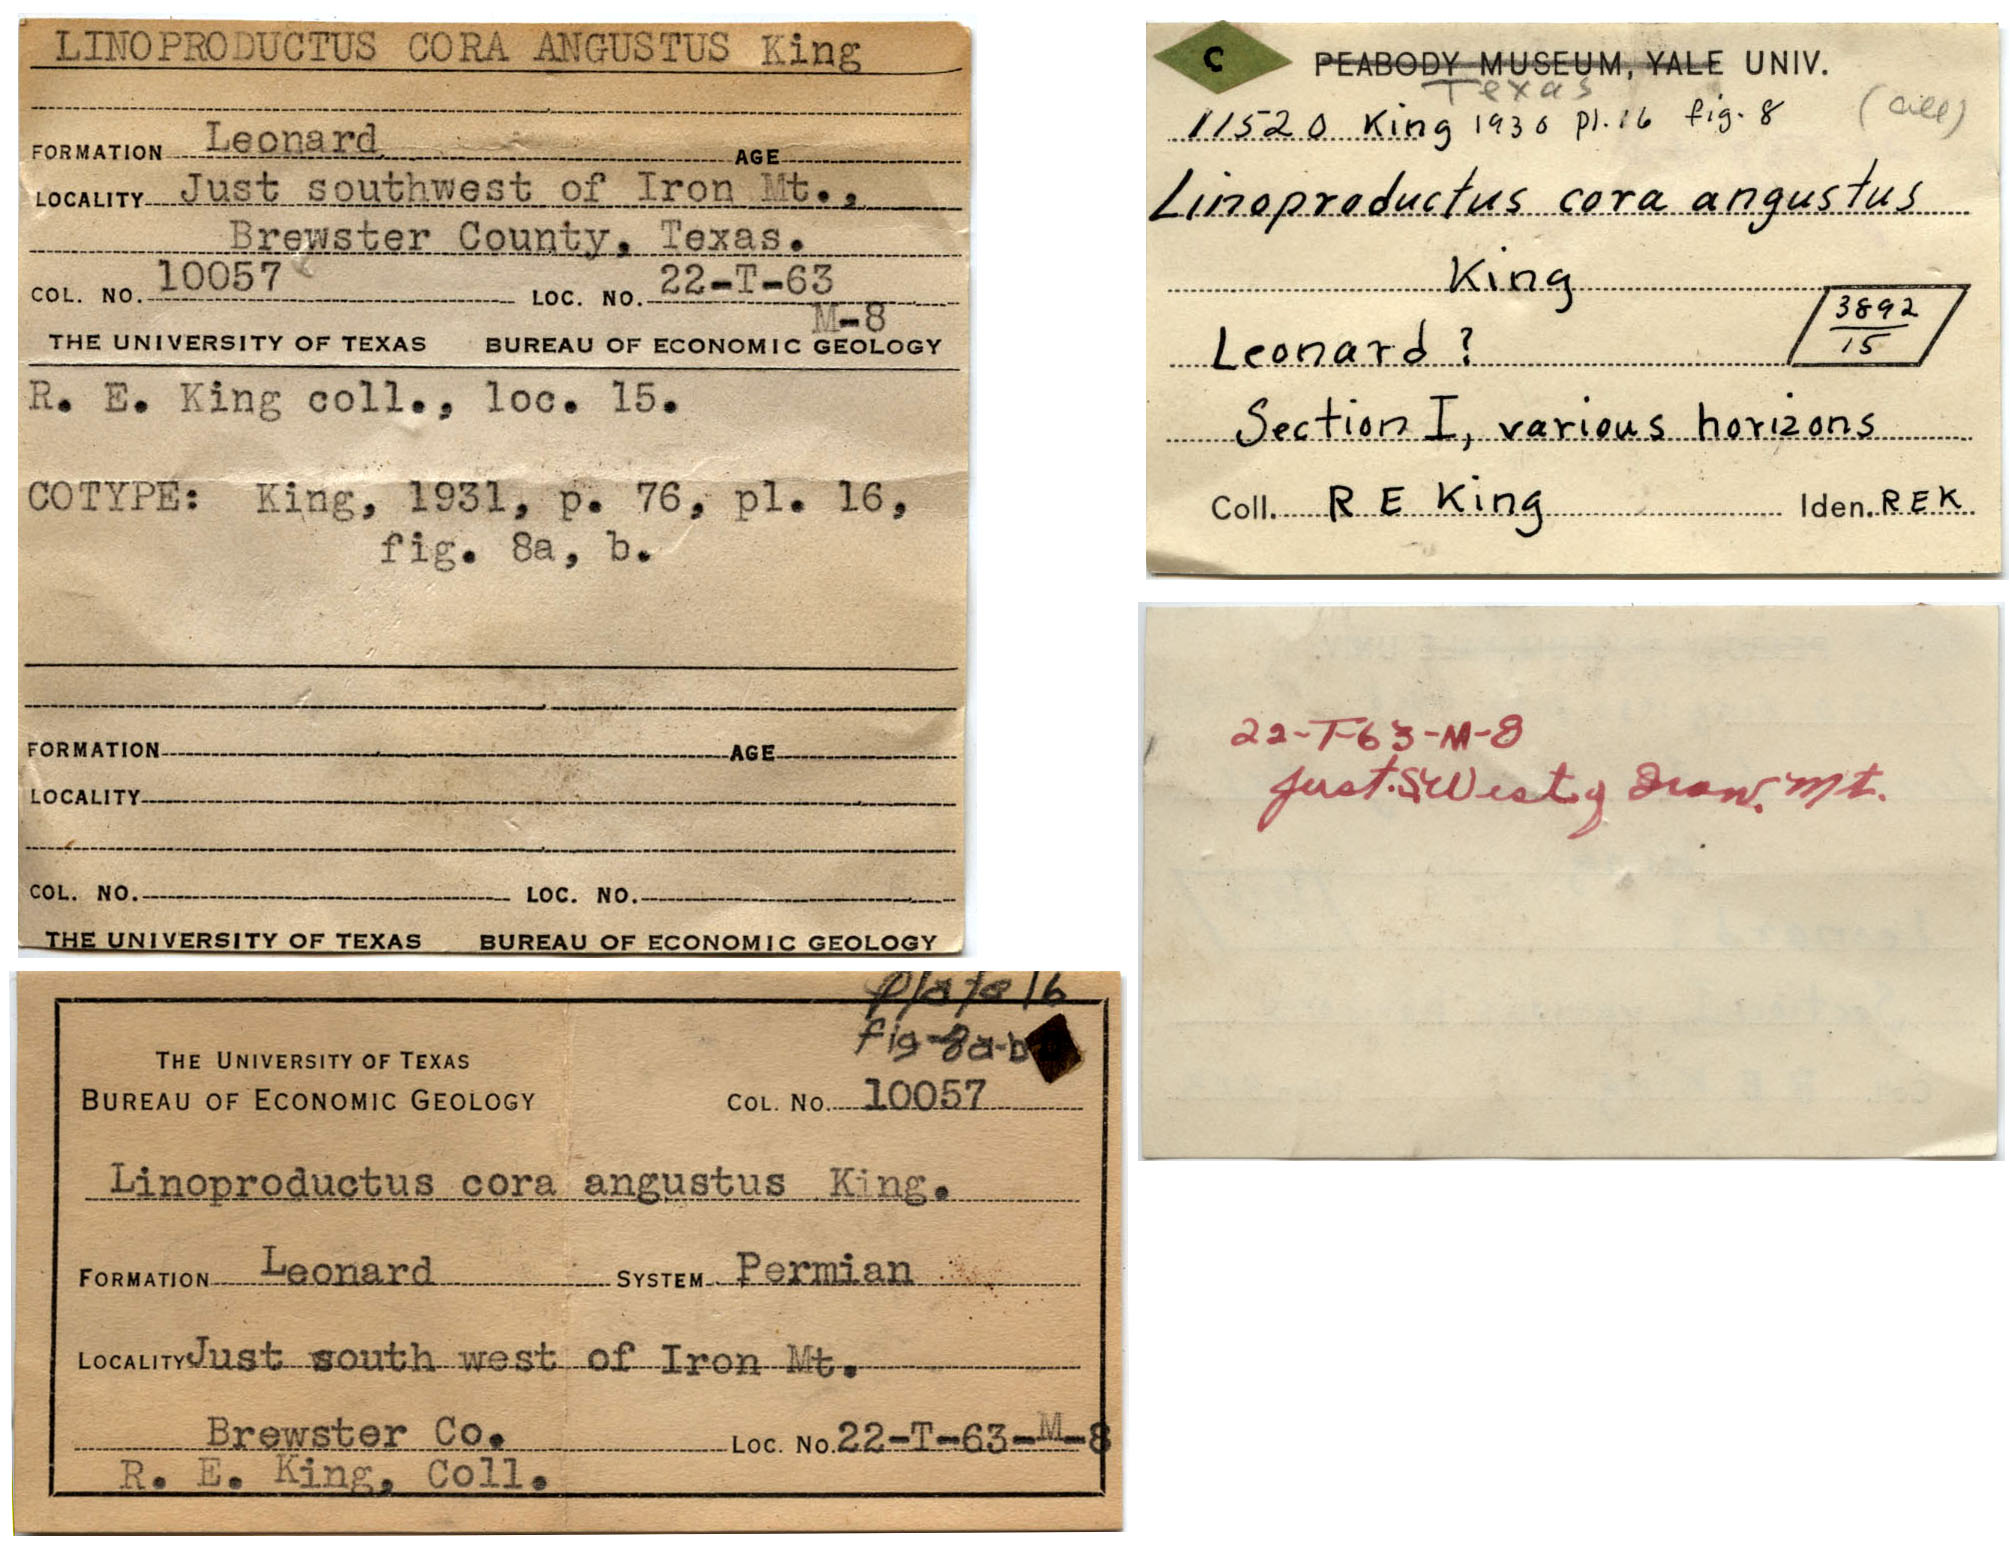 LINOPRODUCTUS CORA ANGUSTUS King
FORMATION Leonard AGE
LOCALITY Just southwest of Iron Mt.,
Brewster County, Texas.
COL. NO. 10057 LOC. NO. 22-T-63
M-8
THE UNIVERSITY OF TEXAS BUREAU OF ECONOMIC GEOLOGY
R. E. King coll., loc. 15.
COTYPE: King, 1931, p. 76, pl. 16,
fig. 8a, b.
FORMATION AGE
LOCALITY
COL. NO. LOC. NO.
THE UNIVERSITY OF TEXAS BUREAU OF ECONOMIC GEOLOGY
plate 16
fig-8a-b
THE UNIVERSITY OF TEXAS
BUREAU OF ECONOMIC GEOLOGY COL. NO. 10057
Linoproductus cora angustus King.
FORMATION Leonard SYSTEM Permian
LOCALITY Just south west of Iron Mt.
Brewster Co. LOC. NO. 22-T-63-M-8
R. E. King, Coll.
C PEABODY MUSEUM, YALE UNIV.
Texas
11520 King 1930 pl. 16 fig. 8
Linoproductus cora angustus
King
3892
15
Leonard ?
Section I, various horizons
Coll. R E King Iden. R E K
22-T-63-M-8
just S.West of Iron Mt.